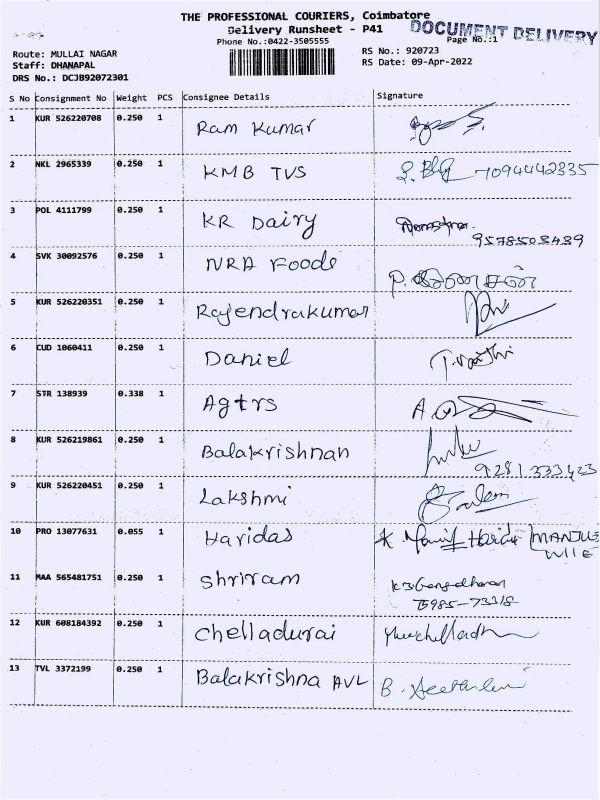 THE PROFESSIONAL COURIERS, Coimbatore
Delivery Runsheet - P41
DOCUMENT DELIVERY
Phone No.:0422-3505555
Page No.:1
Route: MULLAI NAGAR
RS No.: 920723
Staff: DHANAPAL
RS Date: 09-Apr-2022
DRS No.: DCJB92072301
S No Consignment No Weight PCS Consignee Details Signature
1 KUR 526220708 0.250 1 Ram Kumar
2 NKL 2965339 0.250 1 KMB TVS 7094442335
3 POL 4111799 0.250 1 KR Dairy
9578503439
4 SVK 30092576 0.250 1 NRA Foods
5 KUR 526220351 0.250 1 Rajendrakumar
6 CUD 1060411 0.250 1 Daniel
7 STR 138939 0.338 1 Agtrs
8 KUR 526219861 0.250 1 Balakrishnan
9281333423
9 KUR 526220451 0.250 1 Lakshmi
10 PRO 13077631 0.055 1 Haridas
11 MAA 565481751 0.250 1 Shriram
12 KUR 608184392 0.250 1 Chelladurai
13 TVL 3372199 0.250 1 Balakrishna AVL